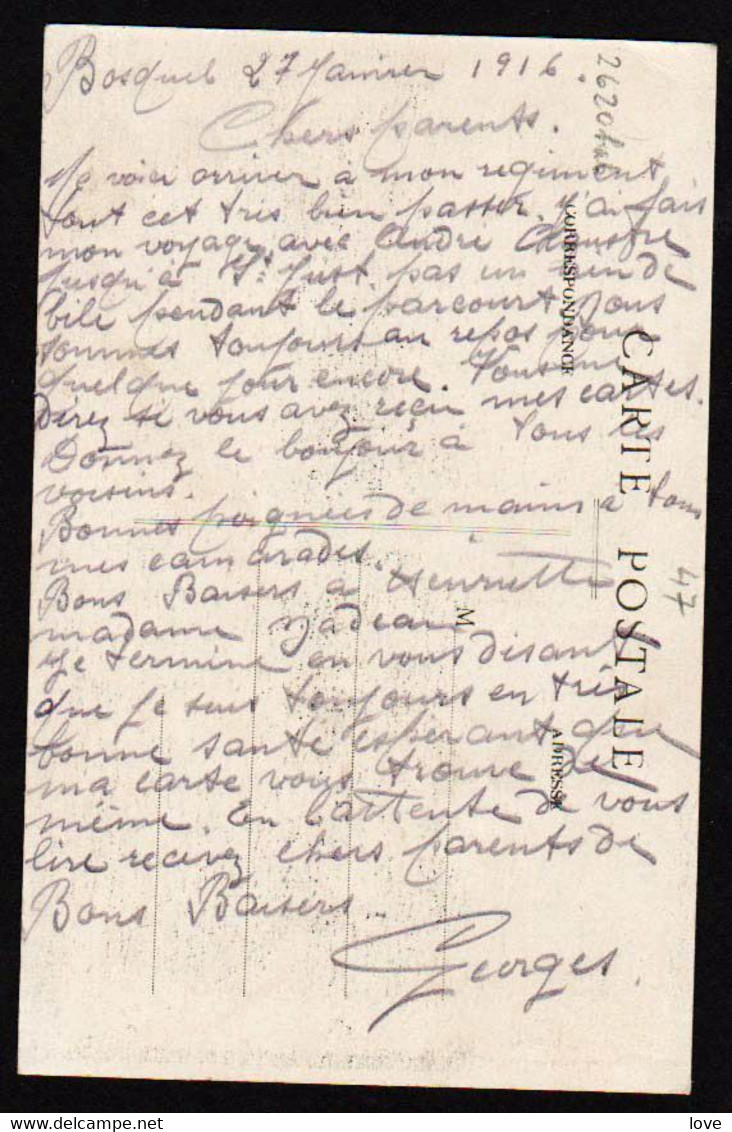 Bosquel 27 Janvier 1916.
Chers parents.
Me voici arriver a mon regiment
tout cet tris bien passer. J'ai fais
mon voyage avec André
Jusqu'à St Just. pas un de
bile pendant le parcourt Nous
sommes toujours au repos pour
quelque jour encore. Vous me
direz si vous avez reçu mes cartes.
Donnez le bonjour à tous les
voisins.
Bonnes poignées de mains a tous
mes camarades.
Bons Baisers a Henriette
madame Nadeau
Je termine en vous disant
que je suis toujours en tris
bonne santé esperant que
ma carte vous trouve de
même. En l'attente de vous
lire recevez chers parents de
Bons Baisers
Georges.
CARTE POSTALE
CORRESPONDANCE
ADRESSE
M
47